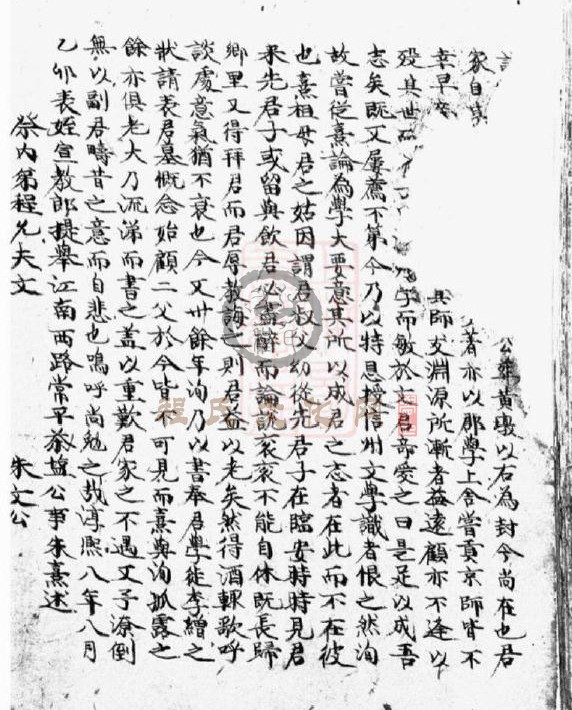 言 公葬黃墩以石為封今尚在也君
家自 者亦以郡學上舍嘗貢京師皆不
幸早卒 其師友淵源所漸者益遠顧亦不逢以
歿其世 學而敏於文君奇愛之曰是足以成吾
志矣既又屢薦不第今乃以特恩授信州文學識者恨之然洵
故嘗從熹論為學大要意其所以成君之志者在此而不在彼
也熹祖母君之姑因謂君叔父幼從先君子在臨安時時見君
來先君子或留與飲君必盡醉而論說衮衮不能自休既長歸
鄉里又得拜君而君辱教誨之則君益以老矣然得酒輒歌呼
談虙意氣猶不衰也今又卅餘年洵乃以書奉君學徒李繒之
狀請表君墓慨念始顧二父於今皆不可見而熹與洵孤露之
餘亦俱老大乃流涕而書之蓋以重歎君家之不遇又予潦倒
無以副君疇昔之意而自悲也嗚呼尚勉之哉淳熙八年八月
乙卯表姪宣教郎提舉江南西路常平茶塩公事朱熹述
祭内弟程允夫文 朱文公
程氏文化网